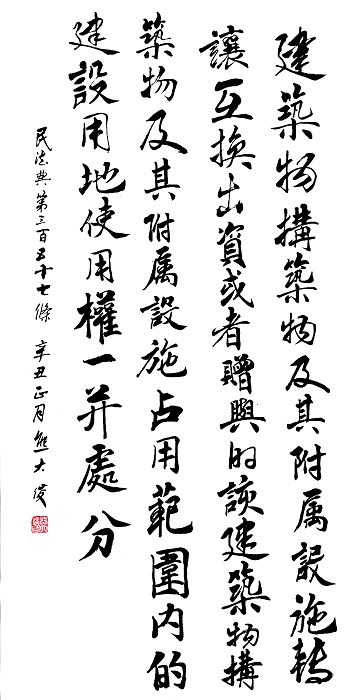 建築物構築物及其附属設施轉
讓互換出資或者贈與的該建築物構
築物及其附属設施占用範圍内的
建設用地使用權一并處分
民法典第三百五十七條 辛丑正月熊大俊